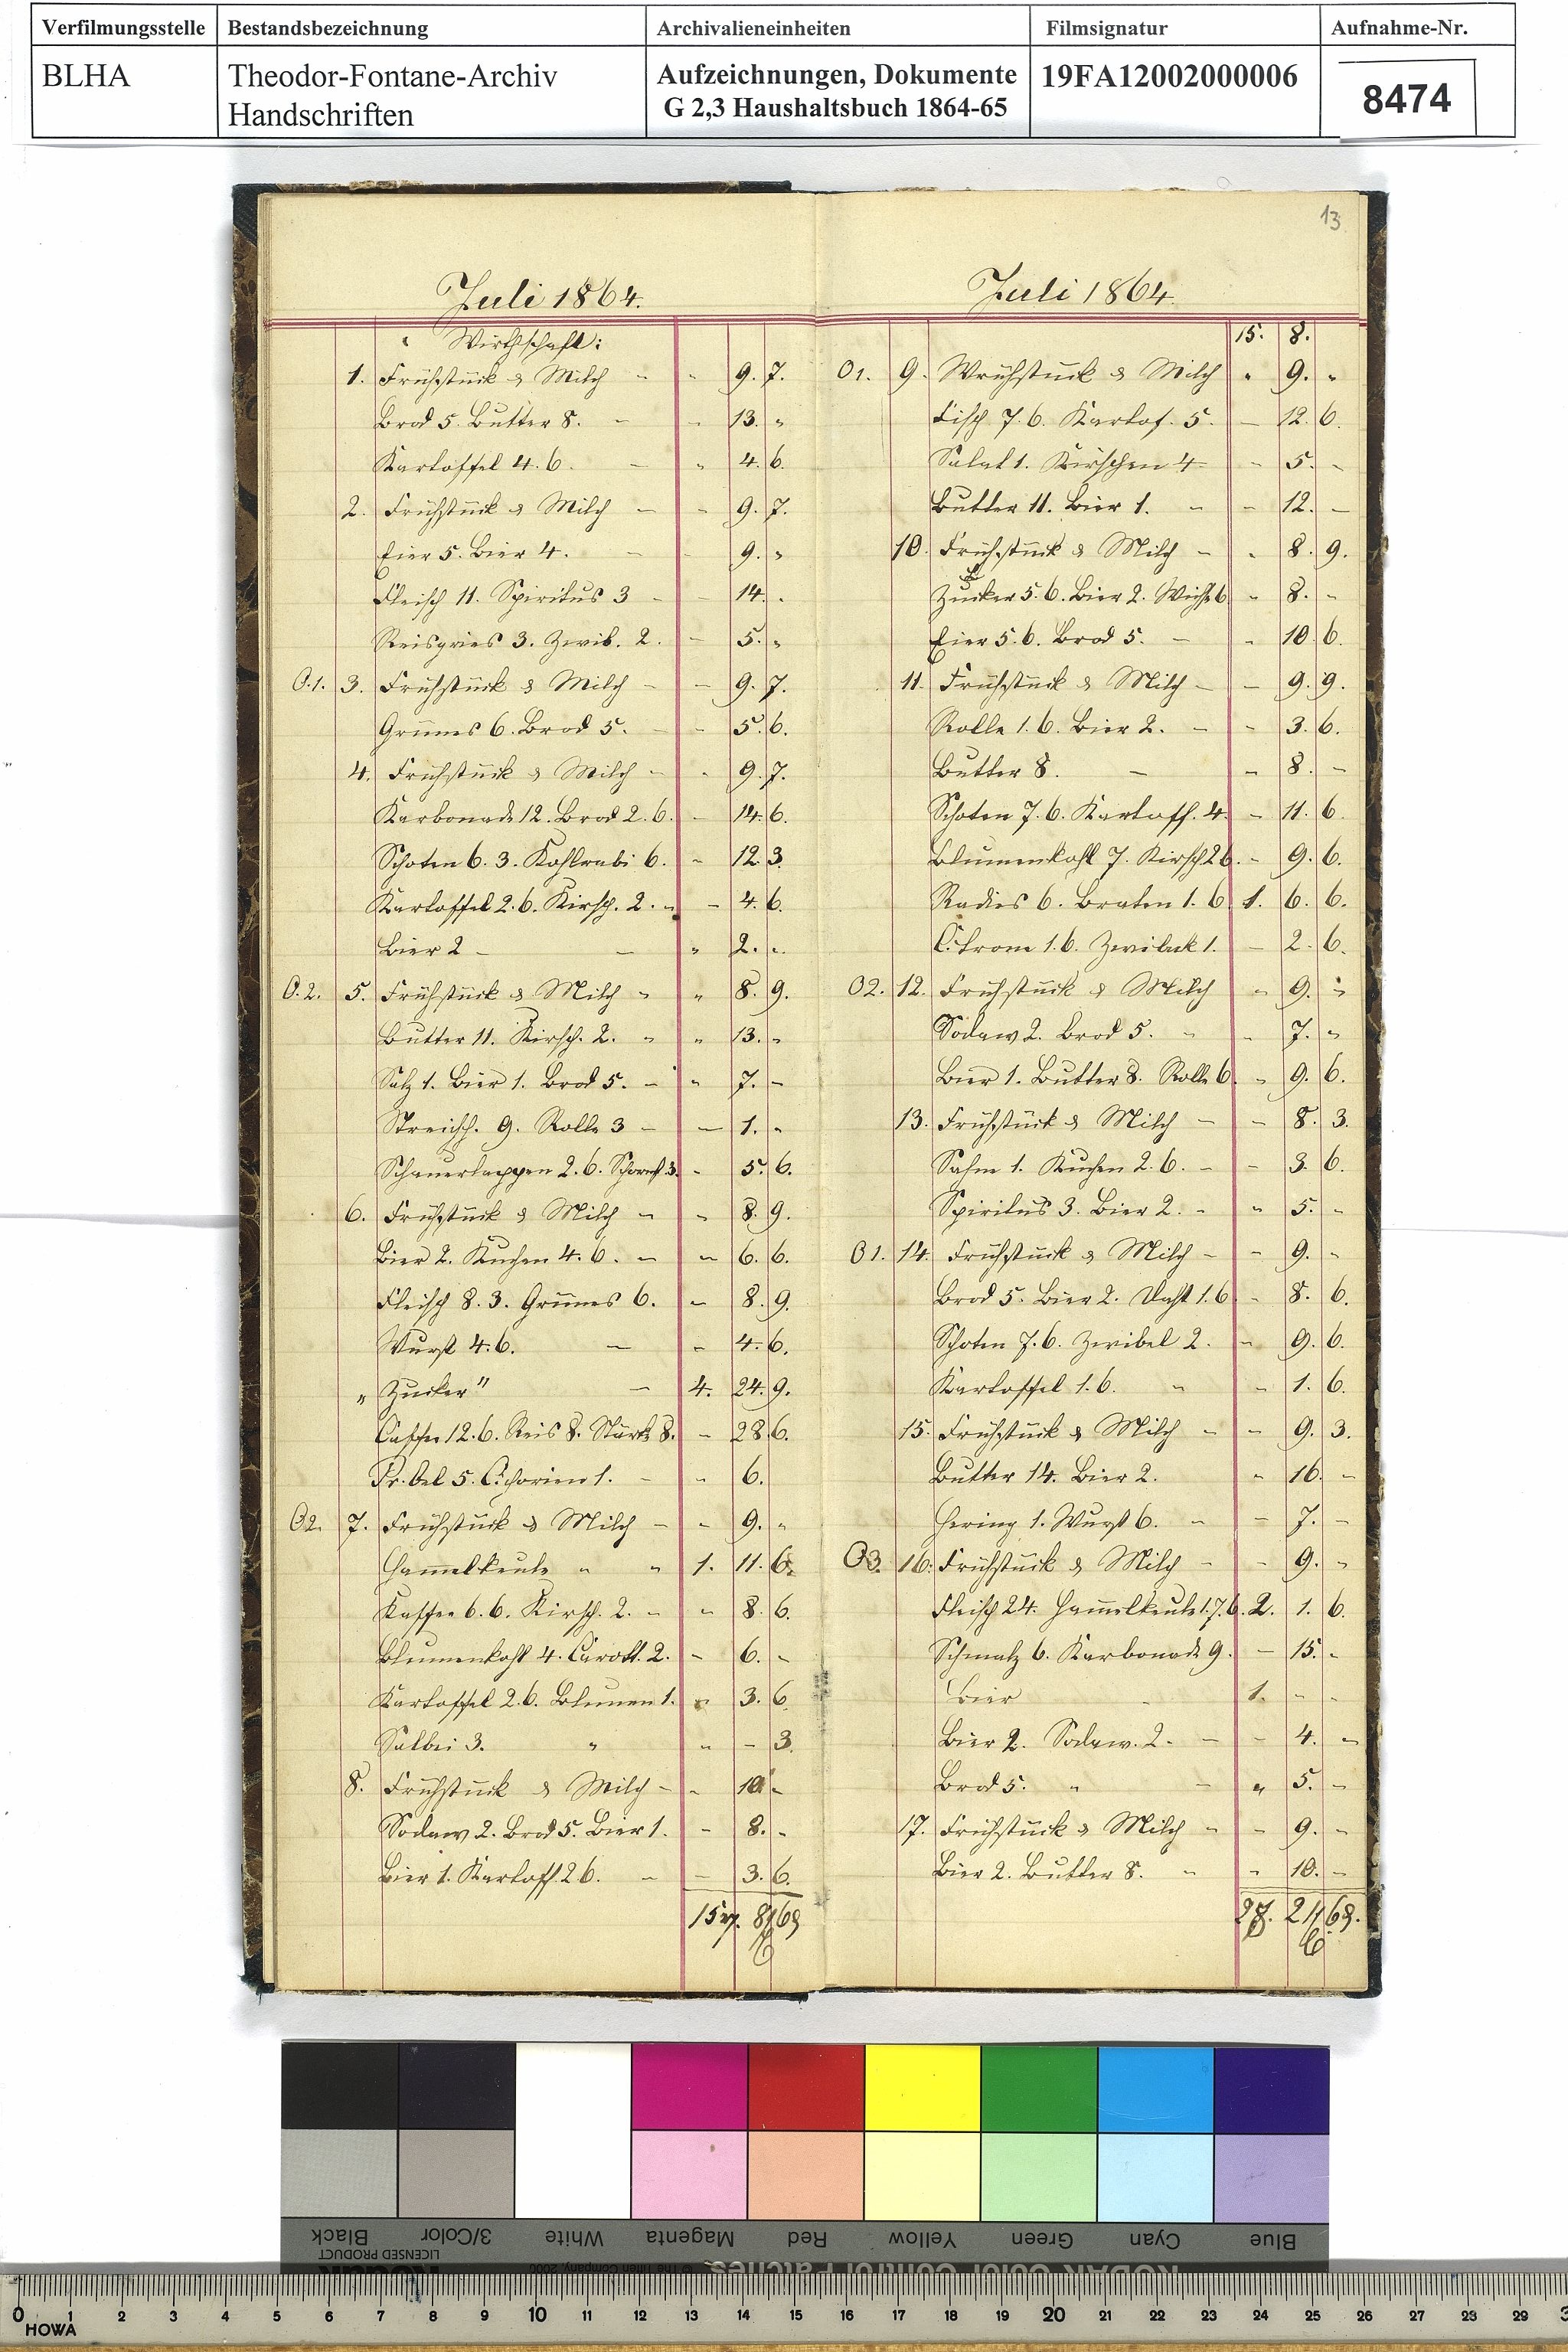 Verfilmungsstelle Bestandsbezeichnung Archivalieneinheiten Filmsignatur Aufnahme-Nr.
BLHA Theodor-Fontane-Archiv Handschriften Aufzeichnungen, Dokumente G 2,3 Haushaltsbuch 1864-65 19FA12002000006 8474
Juli 1864.
Wirthschaft:
1. Frühstück & Milch - - 9. 7.
Brod 5. Butter 8. - - 13. "
Kartoffel 4. 6. - " 4. 6.
2. Frühstück & Milch - - 9. 7.
Eier 5. Bier 4. - - 9. "
Fleisch 11. Spiritus 3 - - 14. -
Reisgries 3. Zwib. 2. - 5. "
O.1. 3. Frühstück & Milch - - 9. 7.
Grünes 6. Brod 5. - - 5. 6.
4. Frühstück & Milch - - 9. 7.
Karbonade 12. Brod 2. 6. - 14. 6.
Schoten 6. 3. Kohlrabi 6. - 12. 3.
Kartoffel 2. 6. Kirsch. 2. - - 4. 6.
Bier 2 - - " 2. -
O.2. 5. Frühstück & Milch - " 8. 9.
Butter 11. Kirsch. 2. " " 13. -
Salz 1. Bier 1. Brod 5. - " 7. -
Streichh. 9. Rolle 3 - - 1. -
Scheuerlappen 2. 6. Schornst 3. - 5. 6.
6. Frühstück & Milch - - 8. 9.
Bier 2. Kuchen 4. 6. - - 6. 6.
Fleisch 8. 3. Grünes 6. - 8. 9.
Wurst 4. 6. - - 4. 6.
" Zucker" - 4. 24. 9.
Caffee 12. 6. Reis 8. Stärke 8. - 28. 6.
Pr. Oel 5. Cichorien 1. - - 6.
O2. 7. Frühstück & Milch - - 9. "
Hammelkeule " " 1. 11. 6.
Kaffee 6. 6. Kirsch. 2. - - 8. 6.
Blumenkohl 4. Carott. 2. - 6. -
Kartoffel 2. 6. Blumen 1. - 3. 6
Salbei 3. " " - 3.
8. Frühstück & Milch - - 10. -
Sodaw 2. Brod 5. Bier 1. - 8. -
Bier 1. Kartoff. 2 6. - - 3. 6.
13
Juli 1864.
15. 8.
O1. 9. Wrühstück & Milch " 9. "
Fisch 7. 6. Kartof. 5. - 12. 6.
Salat 1. Kirschen 4 - 5. -
Butter 11. Bier 1. - - 12. -
10. Frühstück & Milch - - 8. 9.
Zucker 5. 6. Bier 2. Wichse 6 - 8. -
Eier 5. 6. Brod 5. - - 10. 6.
11. Frühstück & Milch - - 9. 9.
Rolle 1. 6. Bier 2. - - 3. 6.
Butter 8. - - 8. -
Schoten 7. 6. Kartoff. 4. - 11. 6
Blumenkohl 7. Kirsch 2 6. - 9. 6.
Radies 6. Braten 1. 6 1. 6. 6.
Citrone 1. 6. Zwieback 1. - 2. 6.
O2. 12. Frühstück & Milch - 9. "
Sodaw 2. Brod 5. " - 7. "
Bier 1. Butter 8. Rolle 6. - 9. 6.
13. Frühstück & Milch - - 8. 3.
Sahn 1. Kuchen 2. 6. - - 3. 6.
Spiritus 3. Bier 2. - " 5. -
O1. 14. Frühstück & Milch - - 9. -
Brod 5. Bier 2. Docht 1. 6 - 8. 6.
Schoten 7. 6. Zwibel 2. - 9. 6.
Kartoffel 1. 6. " - 1. 6.
15. Frühstück & Milch - - 9. 3.
Butter 14. Bier 2. " 16. -
Hering 1. Wurst 6. - - 7. -
O3. 16. Frühstück & Milch - - 9. "
Fleisch 24. Hammelkeule 1. 7. 6. 2. 1. 6.
Schmalz 6. Karbonade 9. - 15. -
Bier - 1. - -
Bier 2. Sodaw. 2. - - 4. -
Brod 5. " - " 5. -
17. Frühstück & Milch - - 9. -
Bier 2. Butter 8. " " 10. -
Black 3/Color White Magenta Red Yellow Green Cyan Blue
LICENSED PRODUCT
0 1 2 3 4 5 6 7 8 9 10 11 12 13 14 15 16 17 18 19 20 21 22 23 24 25 26 27 28 29
HOWA